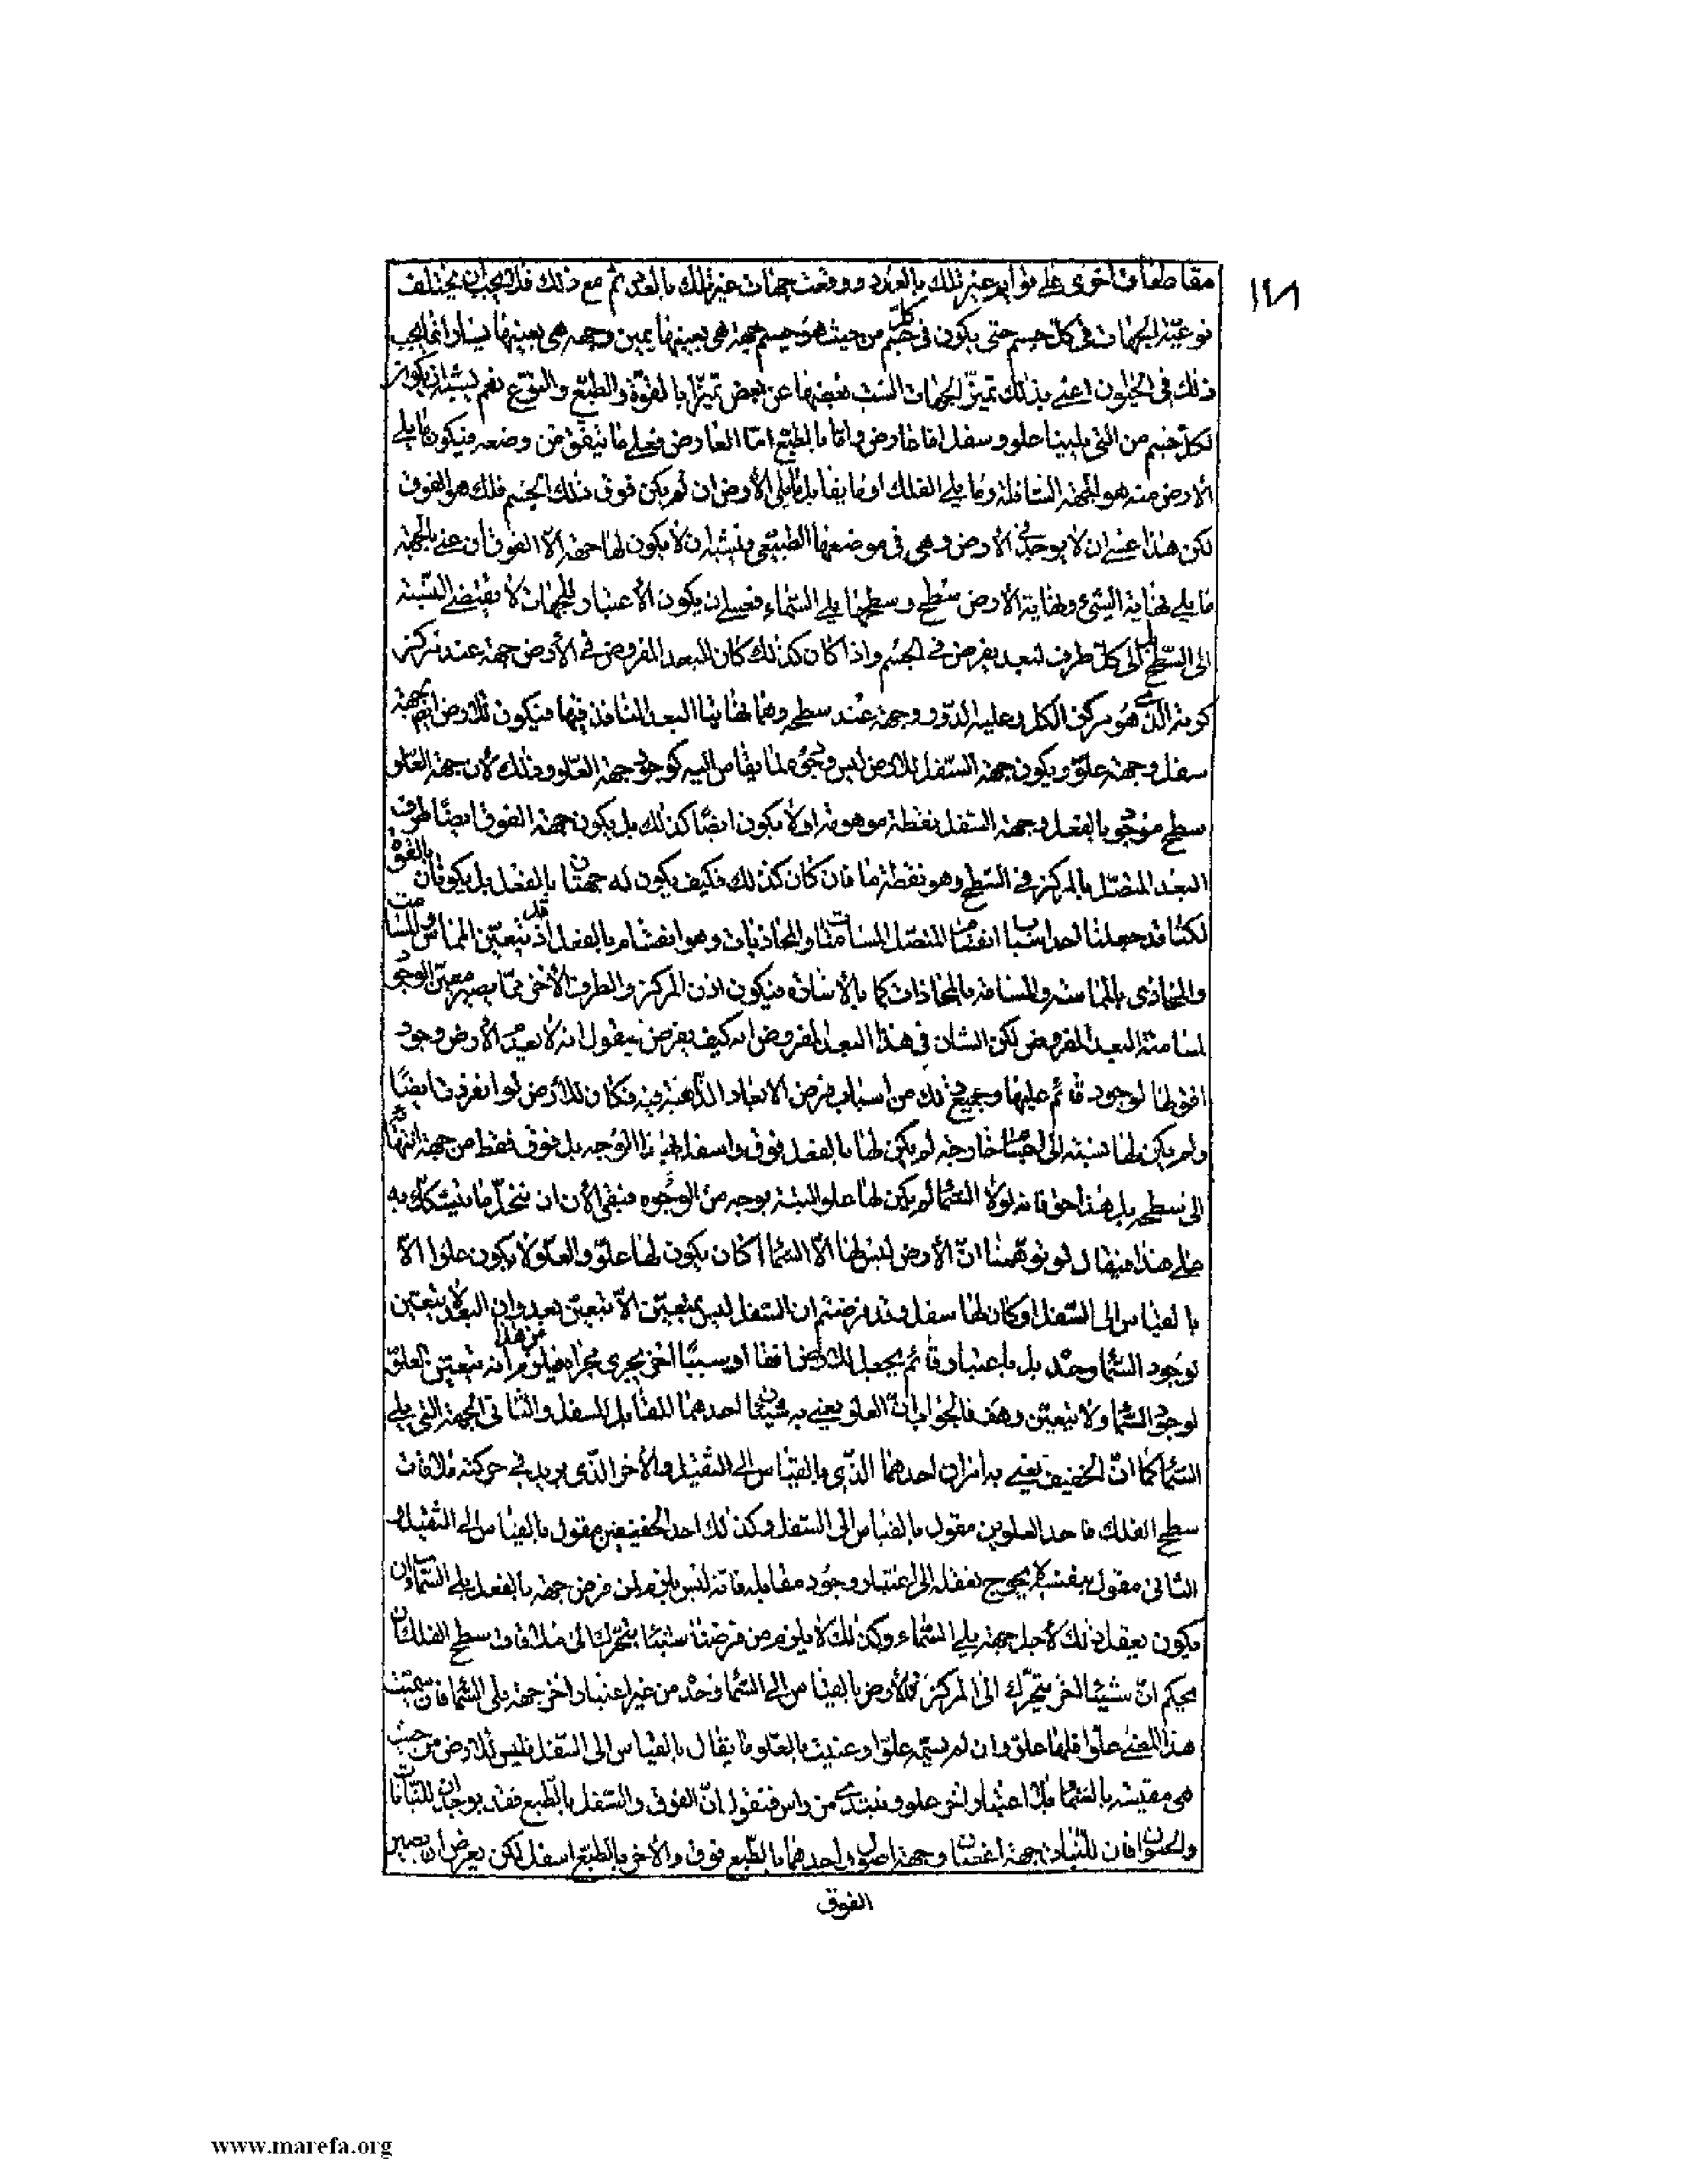 ١٤٨
مقاطعات اخرى على زوايا غير تلك بالعدد ووقعت جهات غير تلك بالعدد ثم مع ذلك فلا يجب ان يختلف
نوعية الجهات فى كل جسم حتى يكون فى كل جسم من حيث هو جسم جهة هى بعينها يمين وجهة هى بعينها يسار انما يجب
ذلك فى الحيوان اعنى بذلك تميز الجهات الست بعضها عن بعض تميزا بالقوة والطبع والنوع نعم يشبه ان يكون
لكل جسم من التى يلينا علو وسفل اما عارض واما بالطبع اما العارض فعلى ما يتفق من وضعه فيكون ما يلى
الارض منه هو الجهة السافلة وما يلى الفلك او ما يقابل ما يلى الأرض ان لم يكن فوق ذلك الجسم فلك هو الفوق
لكن هذا عسى ان لا يوجد فى الأرض وهى فى موضعها الطبيعى ويشبه ان لا يكون لها جهة الا الفوق ان عنى بالجهة
ما يلى نهاية الشىء ونهاية الأرض سطح وسطحها يلى السماء فعسى ان يكون الأعتبار للجهات لا يقتضى النسبة
الى السطح بل الى كل طرف لبعد يفرض فى الجسم واذا كان كذلك كان للبعد المفروض فى الأرض جهة عند مركز
كريته الذى هو مركز الكل وعليه الدور وجهة عند سطحه وهما نهايتا البعد النافذ فيها فيكون للارض ايضا جهة
سفل وجهة علو ويكون جهة السفل للارض ليس وجود ما يقاس اليه كوجود جهة العلو وذلك لأن جهة العلو
سطح موجود بالفعل وجهة السفل نقطة موهومة او لا يكون ايضا كذلك بل يكون جهة الفوق ايضا طرف
البعد المتصل بالمركز فى السطح وهو نقطة ما فان كان كذلك فكيف يكون له جهتان بالفعل بل يكونان بالقوة
لكنا قد جعلنا احد اسباب انقسام المتصل المسامتات والمحاذيات وهو انقسام بالفعل اذ قد يتعين المماس والمسامت
والمحاذى بالمماسة والمسامتة بالمحاذات كما بالأشارة فيكون اذن المركز والطرف الأخر مما يصير معين الوجود
لمسامتة البعد المفروض لكن الشان فى هذا البعد المفروض انه كيف يفرض فيقول انه لا يعدم الأرض وجود
افق لها لوجود قائم عليها وجميع ذلك من اسباب فرض الابعاد الذاهبة فيه فكان للارض لو انفردت ايضا
ولم يكن لها نسبة الى اجسام خارجة لم يكن لها بالفعل فوق واسفل بهذا الوجه بل فوق فقط من جهة انتهائه
الى سطحه بل هذا حق فانه لولا السماء لم يكن لها علو البتة بوجه من الوجوه فبقى الأن ان نحل ما يتشكك به
على هذا فيقال لو توهمنا ان الأرض ليس لها الا السماء اكان يكون لها علو والعلو لا يكون علوا الا
بالقياس الى السفل او كان لها سفل وقد فرضتم ان السفل ليس يتعين الا بتعين بعد وان البعد لا يتعين
بوجود السماء وحده بل باعتبار قائم يجعل للارض افقا او سببا اخر يجرى مجراه فيلزم من هذا انه يتعين العلو
لوجود السماء ولا يتعين وهف فالجواب ان العلو يعنى به شيئان احدهما المقابل للسفل والثانى الجهة التى يلى
السماء كما ان الخفيف يعنى به امران احدهما الذى بالقياس الى الثقيل والأخر الذى يريد فى حركته ملاقات
سطح الفلك فاحد العلوين مقول بالقياس الى السفل وكذلك احد الخفيفين مقول بالقياس الى الثقيل و
الثانى مقول بنفسه لا يحوج تعقله الى اعتبار وجود مقابله فانه ليس يلزم لمن فرض جهة بالفعل يلى السماء ان
يكون يعقل ذلك لأجل جهة يلى السماء وكذلك لا يلزم من فرضنا شيئا يتحرك الى ملاقات سطح الفلك ان
يحكم ان شيئا اخر يتحرك الى المركز فللأرض بالقياس الى السماء وحده من غير اعتبار اخر جهة يلى السماء فان سميت
هذا المعنى علوا فلها علو وان لم تسمه علوا وعنيت بالعلو ما يقال بالقياس الى السفل فليس للارض من حيث
هى مقيسة بالسماء بلا اعتبار اخر علو ونبتدىء من راس فنقول ان الفوق والسفل بالطبع فقد يوجد ان للنباتات
والحيوان فان للنبات جهة اغصان وجهة اصول واحدهما بالطبع فوق والأخر بالطبع اسفل لكن يعرض ان يصير
الفوق
www.marefa.org